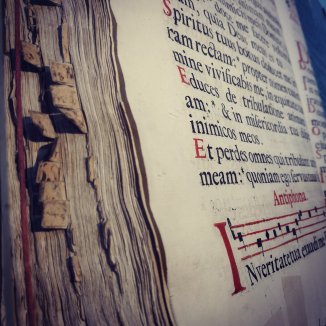 am; quia Deus meus
Spiritus tuus bonus deducet me
ram rectam: propter nomen
mine vivificabis me,
Educes de tribulatione animam
am; & in misericordia tua
inimicos meos.
Et perdes omnes qui tribulant
meam: quoniam ego servus tuus
Antiphona.
IN veritate tua exaudi me